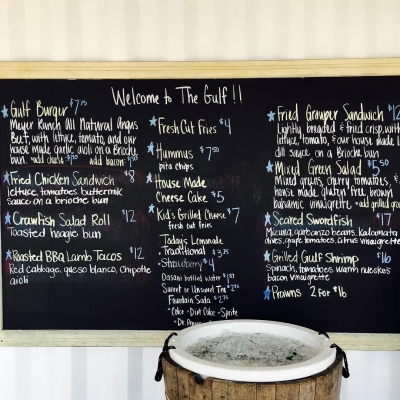 Welcome to The Gulf!!
Gulf Burger $7.75
Meyer Ranch All Natural Angus
Beef, with lettuce, tomato, and our
house made garlic aioli on a Brioche
bun.
add bacon
Fried Chicken Sandwich $8
lettuce, tomatoes, buttermilk
sauce on a brioche bun
Crawfish Salad Roll $12
Toasted hoagie bun
Roasted BBQ Lamb Tacos $12
Red cabbage, queso blanco, Chipotle
aioli
Fresh Cut Fries $4
Hummus $7.50
pita chips
House Made
Cheese Cake $5
Kid's Grilled Cheese $7
fresh cut fries
Todays Lemonade
Traditional $3.75
Strawberry $4
Dasani bottled water
Sweet or Unsweet Tea
Fountain Soda
Coke - Diet Coke - Sprite
Dr.
Fried Grouper Sandwich $12
Lightly breaded & fried crisp, with
lettuce, tomato, & our house made
dill sauce on a Brioche bun.
Mixed Green Salad $5.50
Mixed greens, cherry tomatoes,
house made gluten free, brown
balsamic vinaigrette
Seared Swordfish $17
Mizuna, garbanzo beans, kalamata
olives, grape tomatoes, citrus vinaigrette
Grilled Gulf Shrimp $16
Spinach, tomatoes, warm nueske's
bacon vinaigrette
Prawns 2 for $16